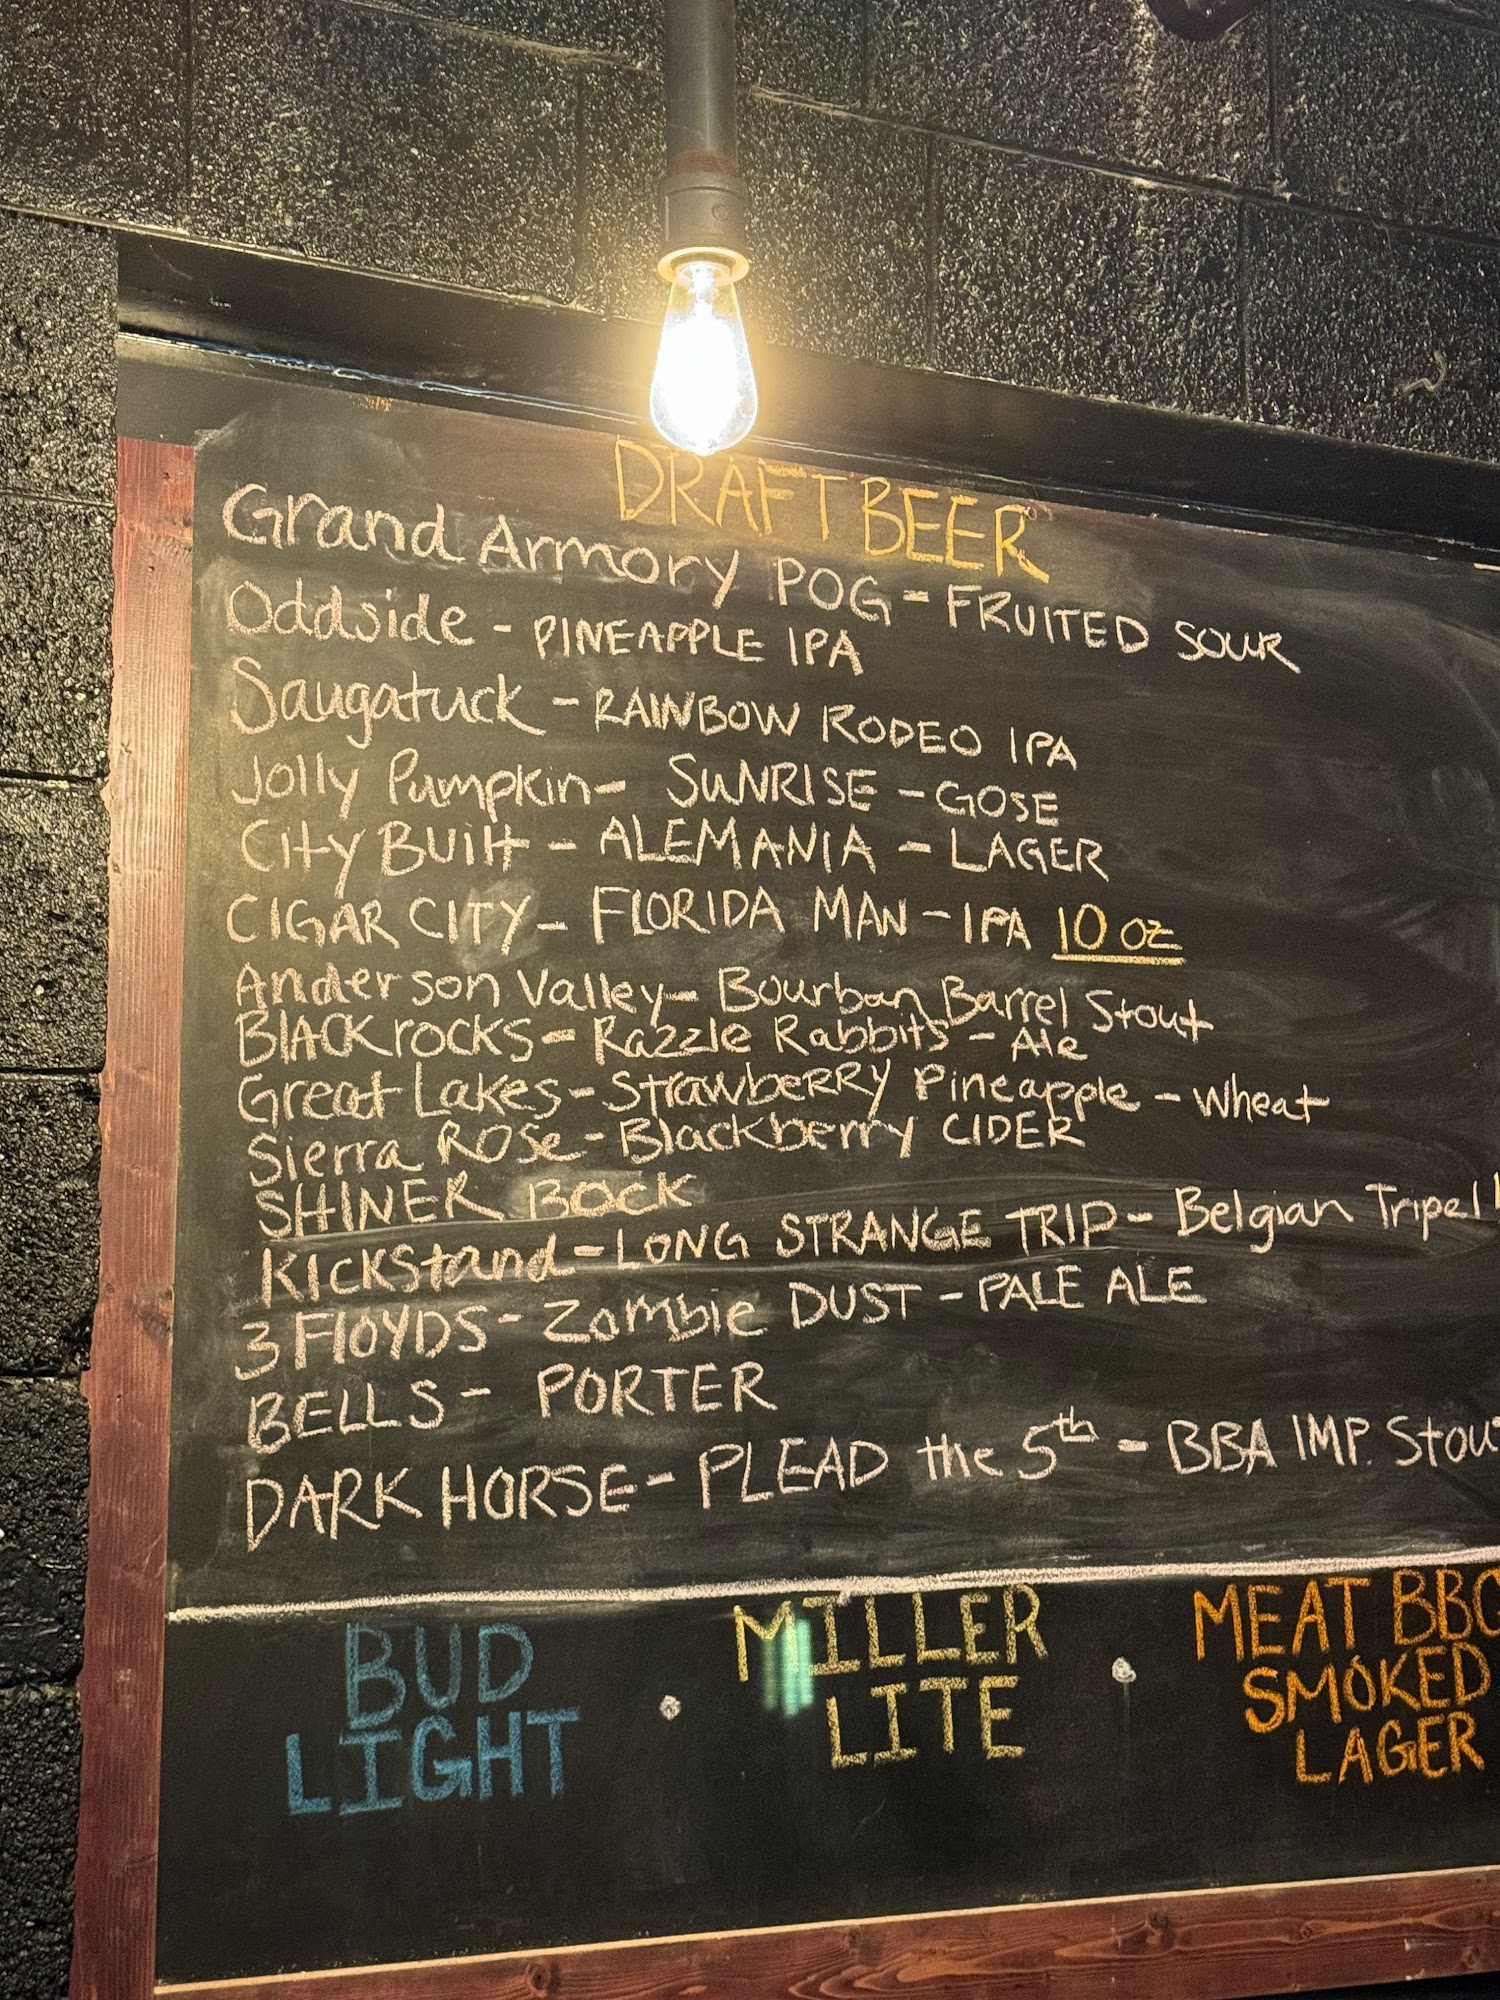 DRAFT BEER
Grand Armory POG - FRUITED SOUR
Oddside - PINEAPPLE IPA
Saugatuck - RAINBOW RODEO IPA
Jolly Pumpkin - SUNRISE - GOSE
City Built - ALEMANIA - LAGER
CIGAR CITY - FLORIDA MAN - IPA 10 oz
Anderson Valley - Bourbon Barrel Stout
BlACKrocks - Razzle Rabbits - Ale
Great Lakes - StrawbeRRy Pineapple - Wheat
Sierra ROSe - Blackberry CIDER
SHINER BOCK
KICKStand - LONG STRANGE TRIP - Belgian Tripel
3 FlOYDS - Zombie DUST - PALE ALE
BELLS - PORTER
DARK HORSE - PLEAD the 5th - BBA IMP. Stou
BUD
LIGHT
•
MILLER
LITE
•
MEAT BBQ
SMOKED
LAGER